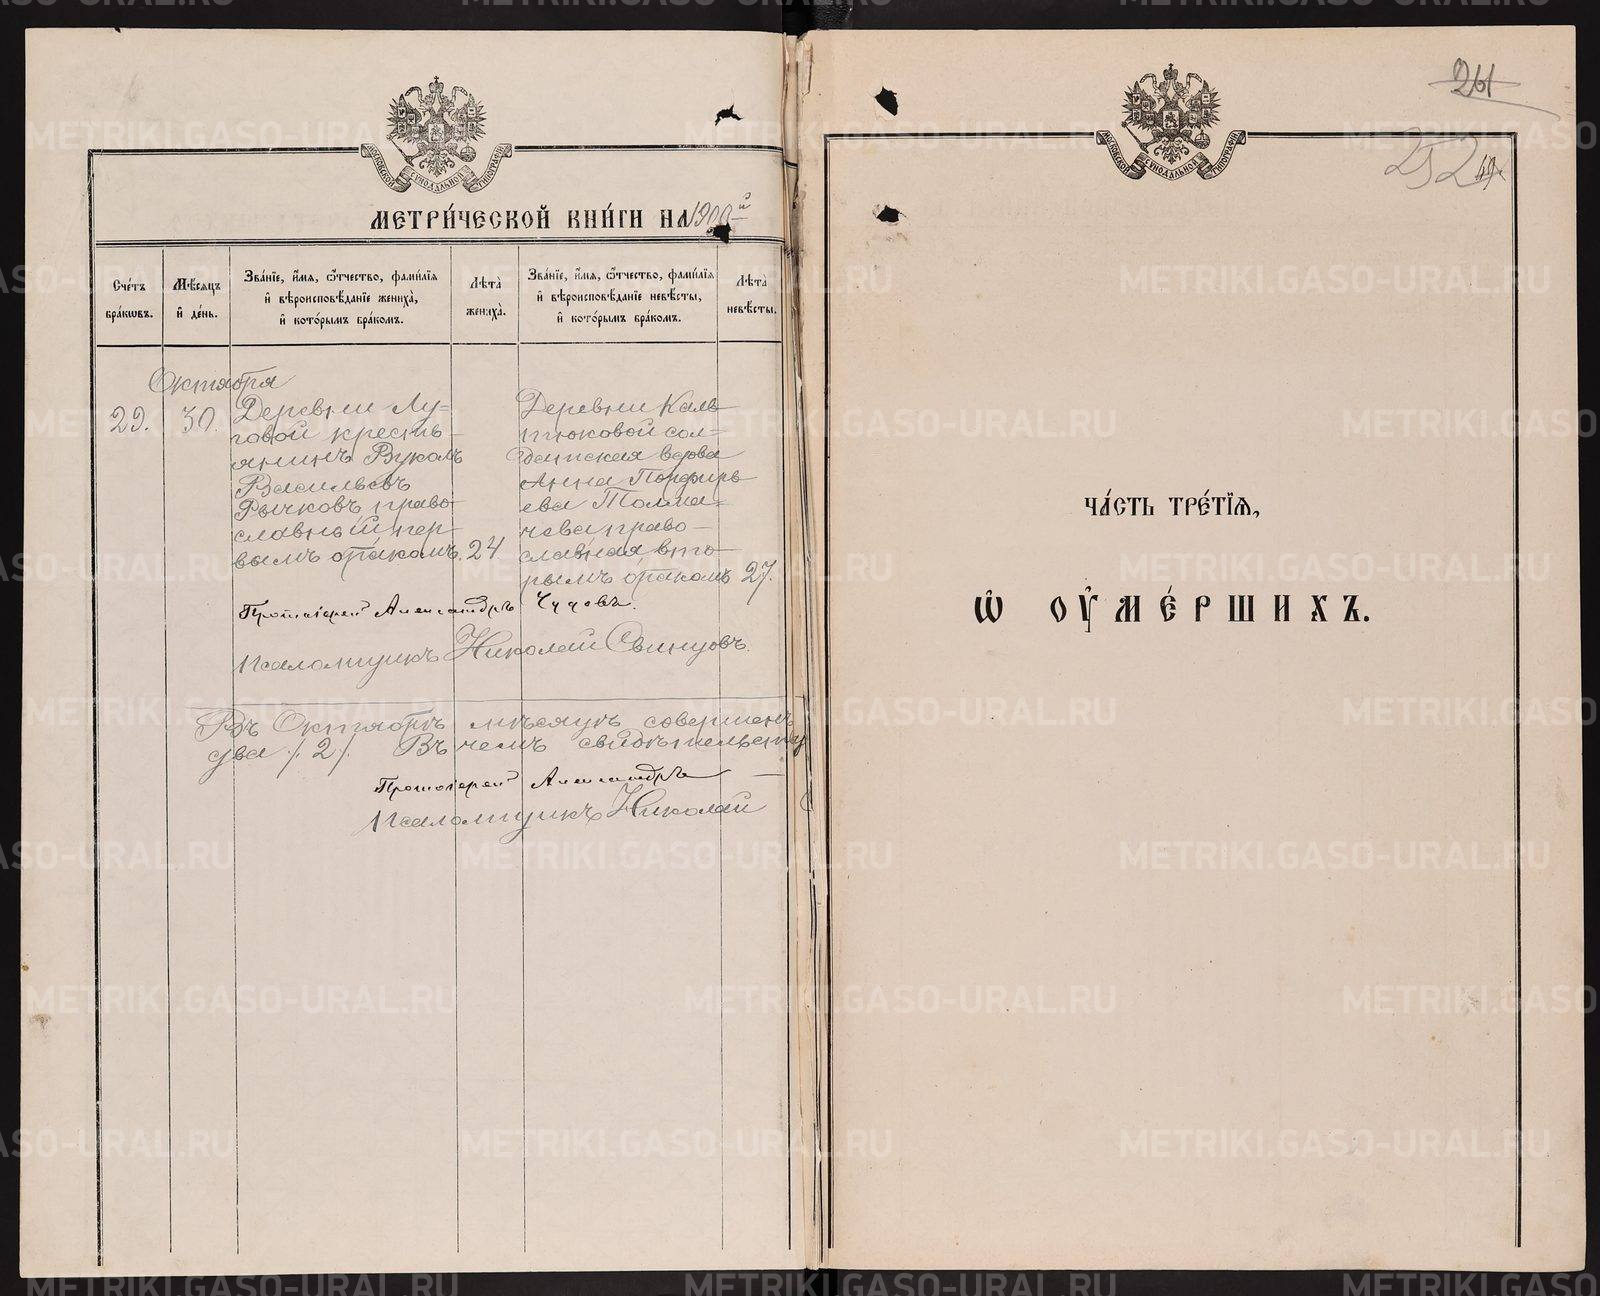 МОСКОВСКОЙ СѴНОДАЛЬНОЙ ТИПОГРАФІИ
МЕТРИ́ЧЕСКОЙ КНИ́ГИ НА 1900-й
Сче́тъ бра́кѡвъ.
Мѣ́сяцъ и҆ де́нь.
Зва́нїе, и҆́мѧ, ѻ҆́тчество, фами́лїѧ и҆ вѣроисповѣ́данїе жениха̀, и҆ кото́рымъ бра́комъ.
Лѣ́та̀ жениха̀.
Зва́нїе, и҆́мѧ, ѻ҆́тчество, фами́лїѧ и҆ вѣроисповѣ́данїе невѣ́сты, и҆ кото́рымъ бра́комъ.
Лѣ́та̀ невѣ́сты.
Октября
29.
30.
Деревни Лу-
говой кресть-
янинъ Вуколъ
Васильевъ
Рычковъ право-
славный пер-
вымъ бракомъ.
24
Деревни Каль-
тюковой сол-
датская вдова
Анна Порфирь-
ева Толма-
чева право-
славная вто-
рымъ бракомъ
27.
Протоіерей Александръ Чудовъ.
Псаломщикъ Николай Свинцовъ.
Въ Октябрѣ мѣсяцѣ совершенъ
два /2/. Въ чемъ свидѣтельству
Протоіерей Александръ
Псаломщикъ Николай
261
252
МОСКОВСКОЙ СѴНОДАЛЬНОЙ ТИПОГРАФІИ
ЧА́СТЬ ТРЕ́ТЇѦ,
Ѡ҆ ОУ҆МЕ́РШИХЪ.
METRIKI.GASO-URAL.RU